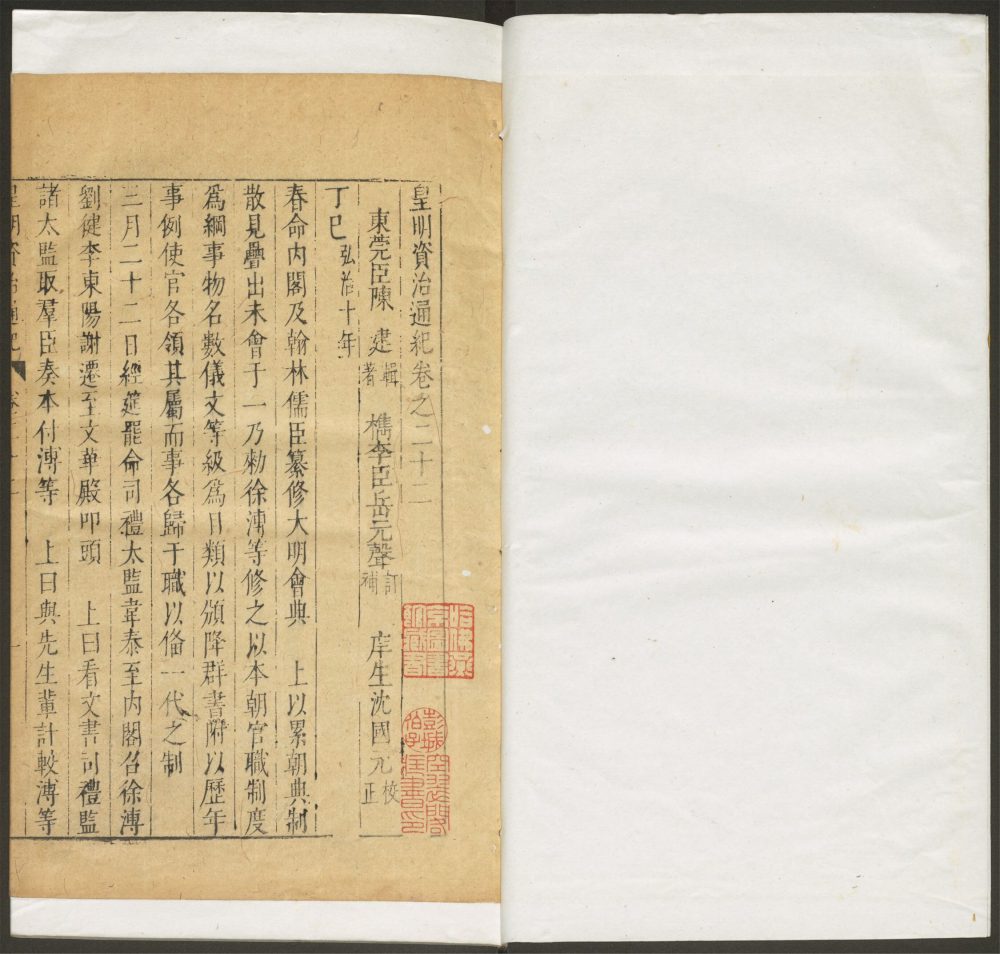 皇明資治通紀卷之二十二
東莞臣陳建輯著 檇李臣岳元聲訂補 庠生沈國元校正
丁巳弘治十年
春命內閣及翰林儒臣纂修大明會典 上以累朝典制
散見疊出未會于一乃勑徐溥等修之以本朝官職制度
爲綱事物名數儀文等級爲目類以頒降群書附以歷年
事例使官各領其屬而事各歸于職以俻一代之制
三月二十二日經筵罷命司禮太監韋泰至內閣召徐溥
劉健李東陽謝遷至文華殿叩頭 上曰看文書司禮監
諸太監取羣臣奏本付溥等 上曰與先生輩計較溥等
皇明資治通紀
哈佛燕京圖書館